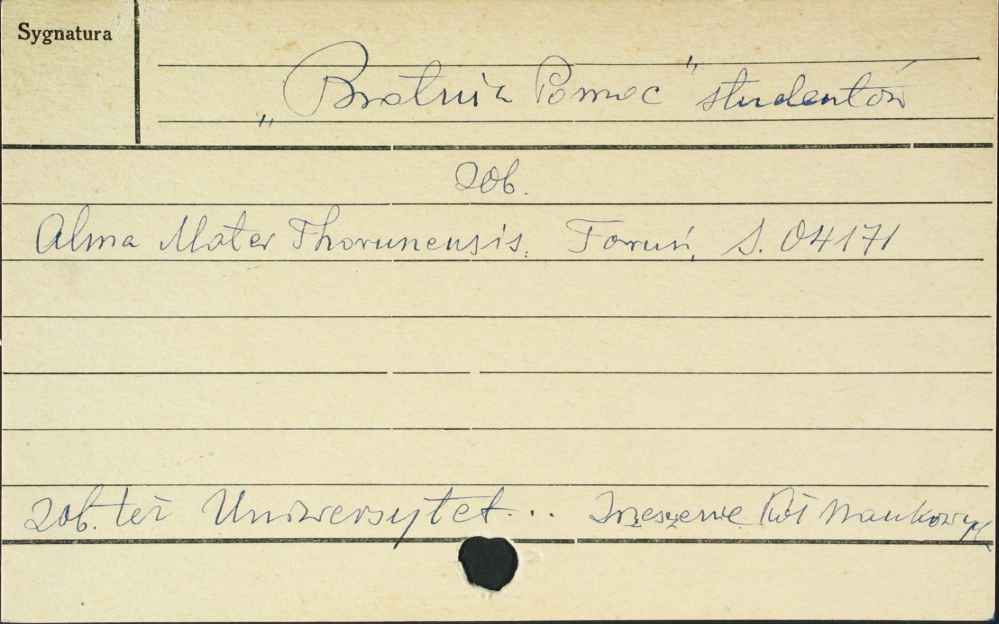 Sygnatura
„Bratnia Pomoc" studentów
zob.
Alma Mater Thorunensis. Toruń, S. 04171
zob. też Uniwersytet... Zrzeszenie Kół Naukowych